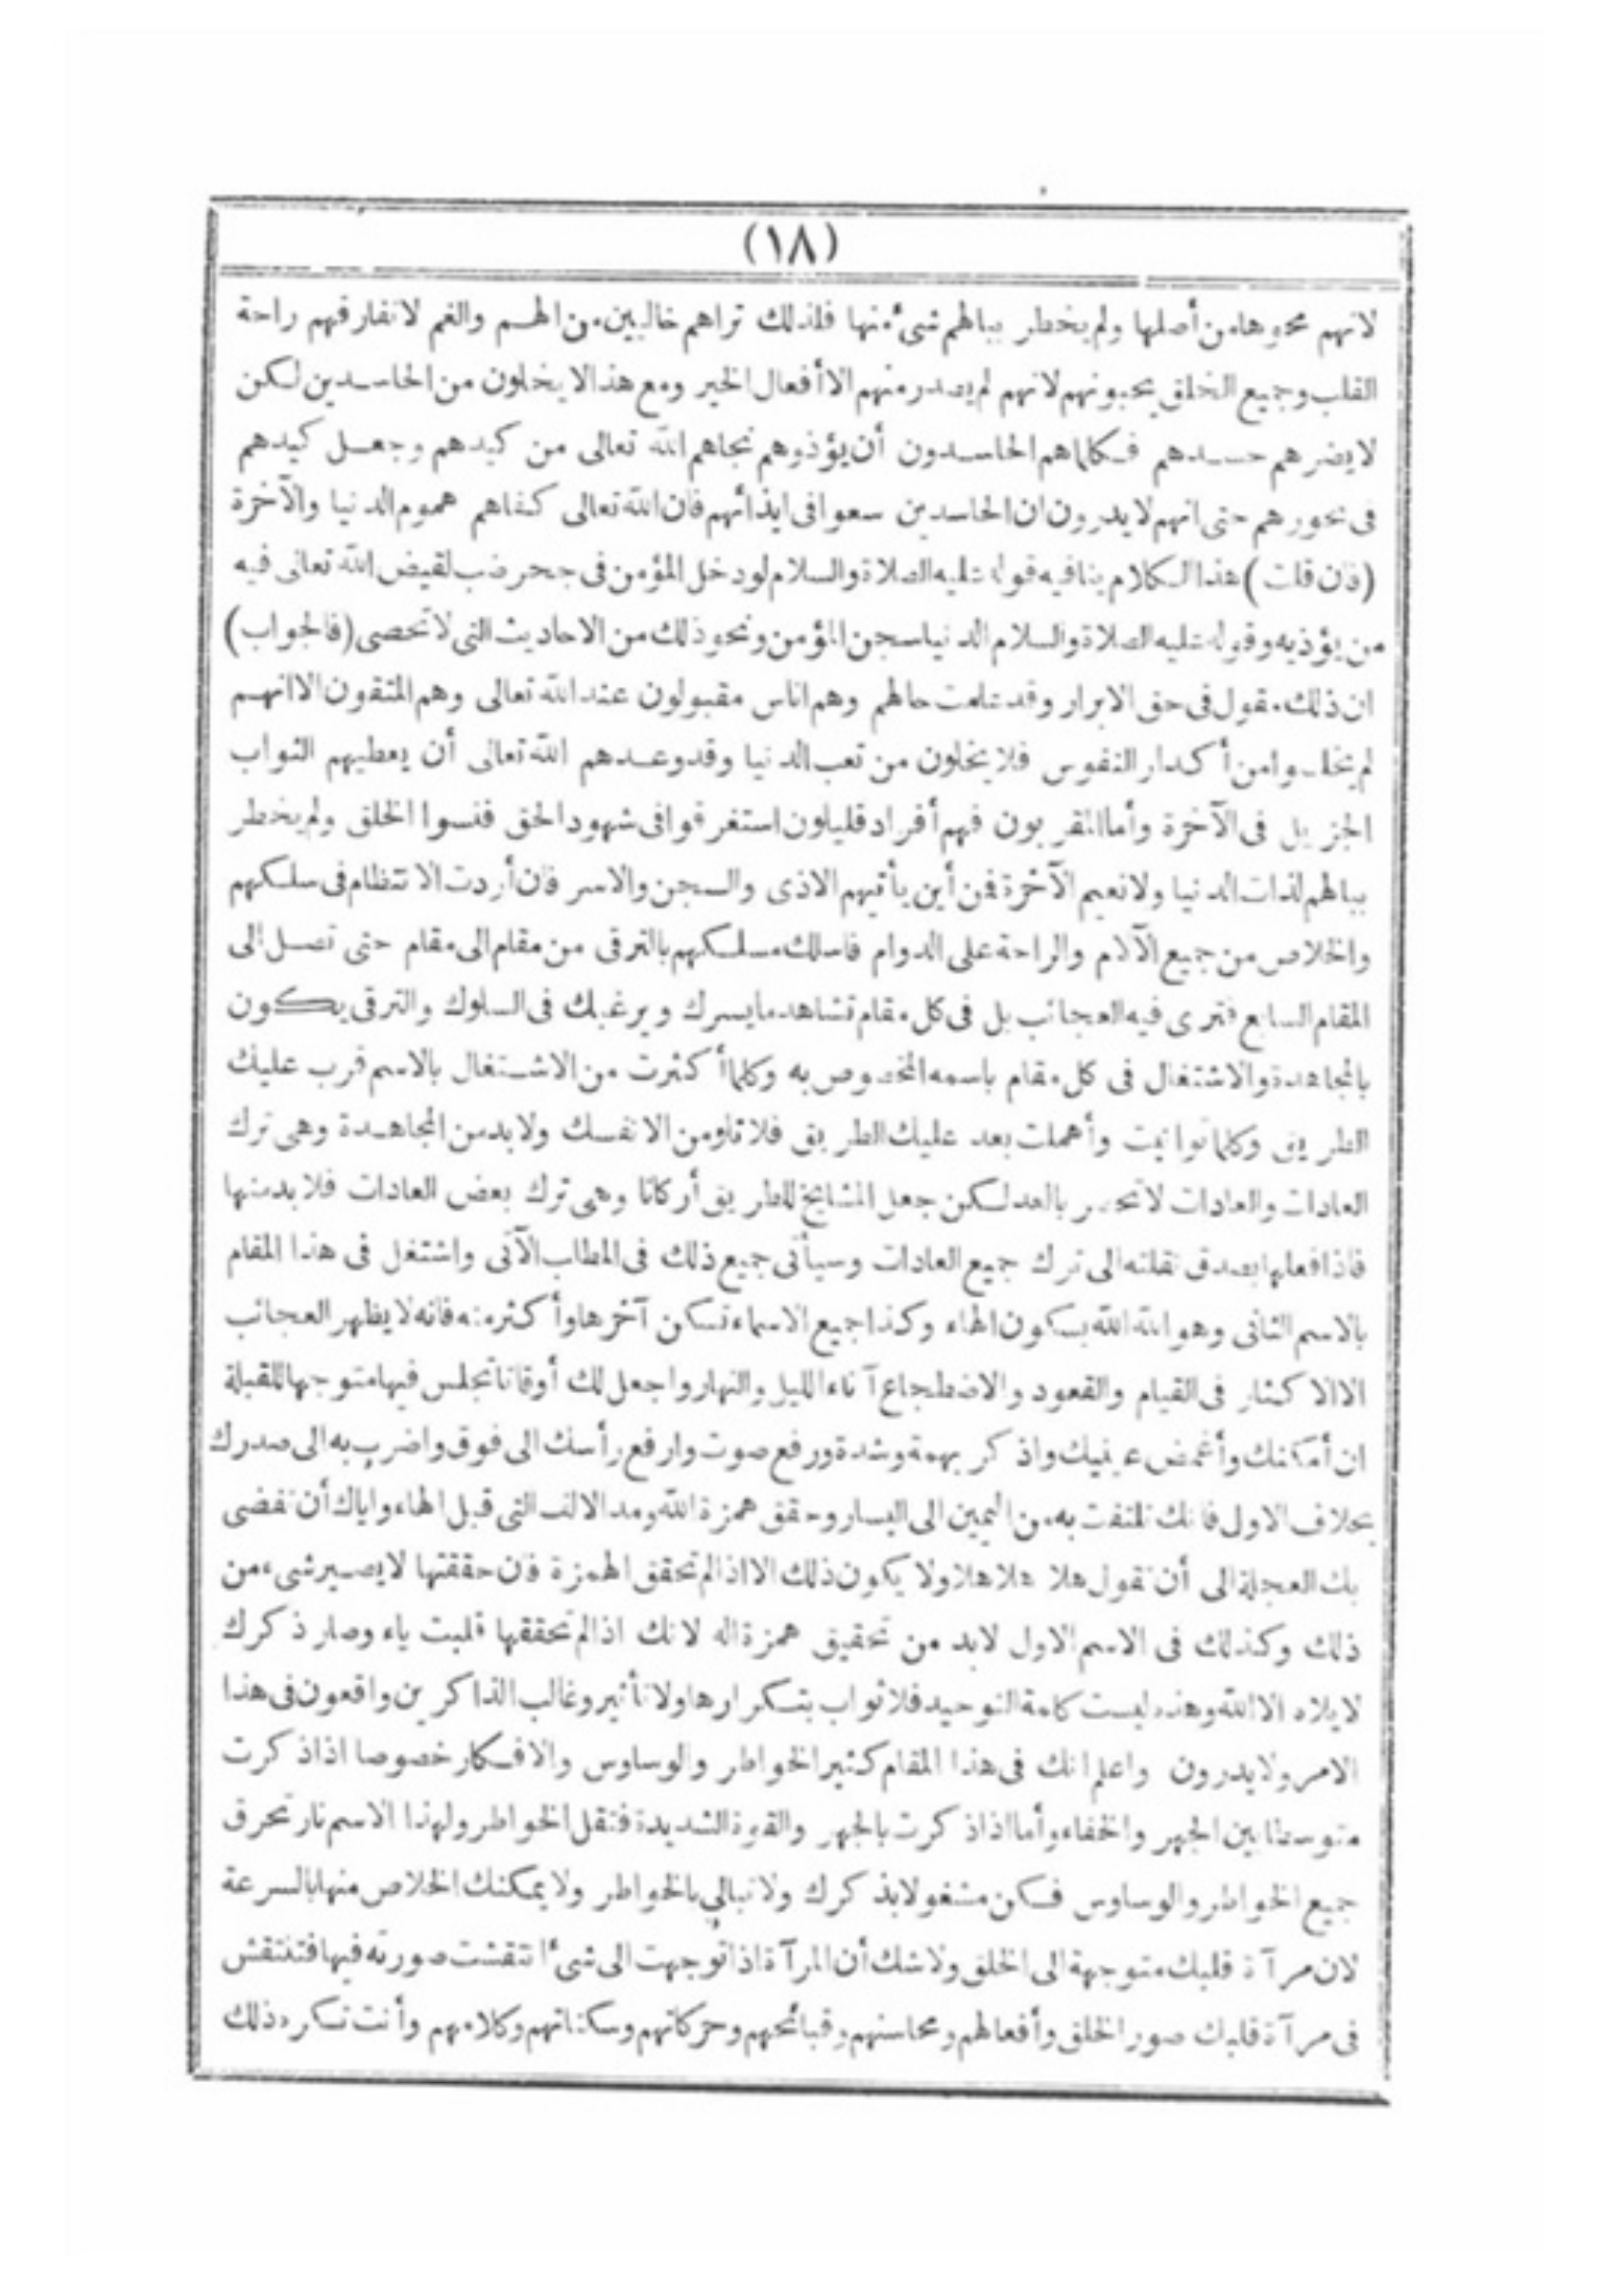 (١٨)
لانهم محوها من أصلها ولم يخطر ببالهم شئ منها فلذلك تراهم خاليين من الهم والغم لا تفارقهم راحة
القلب وجميع الخلق يحبونهم لانهم لم يصدر منهم الا أفعال الخير ومع هذا لا يخلون من الحاسدين لكن
لا يضرهم حسدهم فكلما هم الحاسدون أن يؤذوهم نجاهم الله تعالى من كيدهم وجعل كيدهم
فى نحورهم حتى انهم لا يدرون ان الحاسدين سعوا فى ايذائهم فان الله تعالى كفاهم هموم الدنيا والآخرة
(فان قلت) هذا الكلام ينافيه قوله عليه الصلاة والسلام لو دخل المؤمن فى جحر ضب لقيض الله تعالى فيه
من يؤذيه وقوله عليه الصلاة والسلام الدنيا سجن المؤمن ونحو ذلك من الاحاديث التى لا تحصى (فالجواب)
ان ذلك مقول فى حق الابرار وقد علمت حالهم وهم اناس مقبولون عند الله تعالى وهم المتقون الا انهم
لم يخلوا من أكدار النفوس فلا يخلون من تعب الدنيا وقد وعدهم الله تعالى أن يعطيهم الثواب
الجزيل فى الآخرة وأما المقربون فهم أفراد قليلون استغرقوا فى شهود الحق فنسوا الخلق ولم يخطر
ببالهم لذات الدنيا ولا نعيم الآخرة فمن أين يأتيهم الاذى والسجن والاسر فان أردت الانتظام فى سلكهم
والخلاص من جميع الآلام والراحة على الدوام فاسلك مسلكهم بالترقى من مقام الى مقام حتى تصل الى
المقام السابع فترى فيه العجائب بل فى كل مقام تشاهد ما يسرك ويرغبك فى السلوك والترقى يكون
بالمجاهدة والاشتغال فى كل مقام باسمه المخصوص به وكلما أكثرت من الاشتغال بالاسم قرب عليك
الطريق وكلما توانيت وأهملت بعد عليك الطريق فلا تلومن الا نفسك ولا بد من المجاهدة وهى ترك
العادات والعادات لا تحصر بالعد لكن جعل المشايخ للطريق أركانا وهى ترك بعض العادات فلا بد منها
فاذا فعلها بصدق نقلته الى ترك جميع العادات وسيأتى جميع ذلك فى المطلب الآتى واشتغل فى هذا المقام
بالاسم الثانى وهو الله الله بسكون الهاء وكذا جميع الاسماء تسكن آخرها وأكثر منه فانه لا يظهر العجائب
الا الاكثار فى القيام والقعود والاضطجاع آناء الليل والنهار واجعل لك أوقاتا تجلس فيها متوجها للقبلة
ان أمكنك وأغمض عينيك واذكر بهمة وشدة ورفع صوت وارفع رأسك الى فوق واضرب به الى صدرك
بخلاف الاول فانك تلتفت به من اليمين الى اليسار وحقق همزة الله ومد الالف التى قبل الهاء واياك أن تفضى
بك العجلة الى أن تقول هلا هلا هلا ولا يكون ذلك الا اذا لم تحقق الهمزة فان حققتها لا يصير شىء من
ذلك وكذلك فى الاسم الاول لابد من تحقيق همزة اله لانك اذا لم تحققها قلبت ياء وصار ذكرك
لا يلاه الا الله وهذه ليست كلمة التوحيد فلا ثواب بتكرارها ولا تأثير وغالب الذاكرين واقعون فى هذا
الامر ولا يدرون واعلم انك فى هذا المقام كثير الخواطر والوساوس والافكار خصوصا اذا ذكرت
متوسطا بين الجهر والخفاء وأما اذا ذكرت بالجهر والقوة الشديدة فتقل الخواطر ولهذا الاسم نار تحرق
جميع الخواطر والوساوس فكن مشغولا بذكرك ولا تبالي بالخواطر ولا يمكنك الخلاص منها بالسرعة
لان مرآة قلبك متوجهة الى الخلق ولا شك أن المرآة اذا توجهت الى شئ انتقشت صورته فيها فتنتقش
فى مرآة قلبك صور الخلق وأفعالهم ومحاسنهم وقبائحهم وحركاتهم وسكناتهم وكلامهم وأنت تكره ذلك